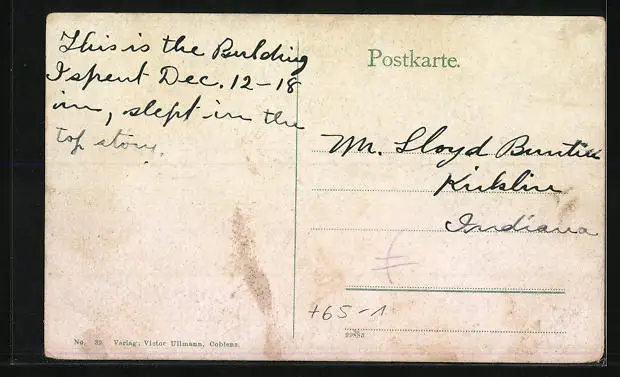 This is the Building
I spent Dec. 12-18
in, slept in the
top story.
Postkarte.
Mr. Lloyd
Kirklin
Indiana
+65-1
22883
No. 32 Verlag: Victor Ullmann, Coblenz.